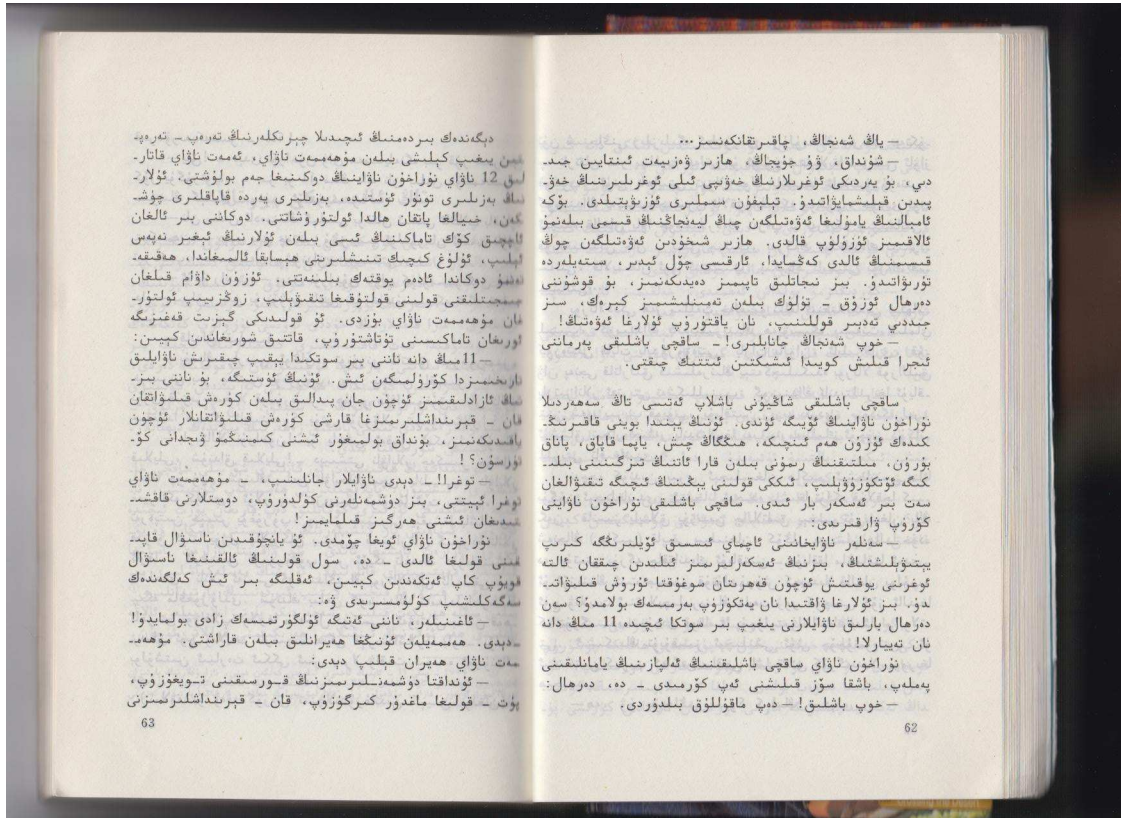 — ياڭ شەنجاڭ، چاقىرتقانكەنسىز...
— شۇنداق، ۋۇ جۈيجاڭ، ھازىر ۋەزىيەت ئىنتايىن جىد-
دىي، بۇ يەردىكى ئوغرىلارنىڭ خەۋپى ئىلى ئوغرىلىرىنىڭ خەۋ-
پىدىن قېلىشمايۋاتىدۇ. تېلېفۇن سىملىرى ئۈزۈۋېتىلدى. بۆكە
ئامبالنىڭ يامۇلىغا ئەۋەتىلگەن چىڭ ليەنجاڭنىڭ قىسمى بىلەنمۇ
ئالاقىمىز ئۈزۈلۈپ قالدى. ھازىر شىخۇدىن ئەۋەتىلگەن چوڭ
قىسىمنىڭ ئالدى كەڭسايدا، ئارقىسى چۆل ئېدىر، سىتەيلەردە
تۇرىۋاتىدۇ. بىز نىجاتلىق تاپىمىز دەيدىكەنمىز، بۇ قوشۇننى
دەرھال ئوزۇق - تۈلۈك بىلەن تەمىنلىشىمىز كېرەك، سىز
جىددىي تەدبىر قوللىنىپ، نان ياقتۇرۇپ ئۇلارغا ئەۋەتىڭ!
— خوپ شەنجاڭ جانابلىرى! — ساقچى باشلىقى پەرماننى
ئىجرا قىلىش كويىدا ئىشىكتىن ئىتتىك چىقتى.
ساقچى باشلىقى شاڭيۇنى باشلاپ ئەتىسى تاڭ سەھەردىلا
نۇراخۇن ناۋاينىڭ ئۆيىگە ئۈندى. ئۇنىڭ يېنىدا بوينى قاقىرنىڭ-
كىدەك ئۇزۇن ھەم ئىنچىكە، ھىڭگاڭ چىش، ياپما قاپاق، پاناق
بۇرۇن، مىلتىقنىڭ رىمۇنى بىلەن قارا ئاتنىڭ تىزگىنىنى بىلە-
كىگە ئۆتكۈزۈۋېلىپ، ئىككى قولىنى يېڭىنىڭ ئىچىگە تىقىۋالغان
سەت بىر ئەسكەر بار ئىدى. ساقچى باشلىقى نۇراخۇن ناۋاينى
كۆرۈپ ۋارقىرىدى:
— سەنلەر ناۋايخانىنى ئاچماي ئىسسىق ئۆيلىرىڭگە كىرىپ
يېتىۋېلىشتىڭ، بىزنىڭ ئەسكەرلىرىمىز ئىلىدىن چىققان ئالتە
ئوغرىنى يوقىتىش ئۈچۈن قەھرىتان سوغۇقتا ئۇرۇش قىلىۋاتى-
دۇ. بىز ئۇلارغا ۋاقتىدا نان يەتكۈزۈپ بەرمىسەك بولامدۇ؟ سەن
دەرھال بارلىق ناۋايلارنى يىغىپ بىر سوتكا ئىچىدە 11 مىڭ دانە
نان تەييارلا!
نۇراخۇن ناۋاي ساقچى باشلىقىنىڭ ئەلپازىنىڭ يامانلىقىنى
پەملەپ، باشقا سۆز قىلىشنى ئەپ كۆرمىدى - دە، دەرھال:
— خوپ باشلىق! — دەپ ماقۇللۇق بىلدۈردى.
62
دېگەندەك بىردەمنىڭ ئىچىدىلا چېرىكلەرنىڭ تەرەپ - تەرەپ-
تىن يىغىپ كېلىشى بىلەن مۇھەممەت ناۋاي، ئەمەت ناۋاي قاتار-
لىق 12 ناۋاي نۇراخۇن ناۋاينىڭ دوكىنىغا جەم بولۇشتى. ئۇلار-
نىڭ بەزىلىرى تونۇر ئۈستىدە، بەزىلىرى يەردە قاپاقلىرى چۈش-
كەن، خىيالغا پاتقان ھالدا ئولتۇرۇشاتتى. دوكاننى بىر ئالغان
ئاچچىق كۆك تاماكىنىڭ ئىسى بىلەن ئۇلارنىڭ ئېغىر نەپەس
ئېلىپ، ئۇلۇغ كىچىك تىنىشلىرىنى ھېسابقا ئالمىغاندا، ھەقىقە-
تەنمۇ دوكاندا ئادەم يوقتەك بىلىنەتتى. ئۇزۇن داۋام قىلغان
جىمجىتلىقنى قولىنى قولتۇقىغا تىقىۋېلىپ، زوڭزىيىپ ئولتۇر-
غان مۇھەممەت ناۋاي بۇزدى. ئۇ قولىدىكى گېزىت قەغىزىگە
ئورىغان تاماكىسىنى تۇتاشتۇرۇپ، قاتتىق شورىغاندىن كېيىن:
— 11مىڭ دانە ناننى بىر سوتكىدا يېقىپ چىقىرىش ناۋايلىق
تارىخىمىزدا كۆرۈلمىگەن ئىش. ئۇنىڭ ئۈستىگە، بۇ ناننى بىز-
نىڭ ئازادلىقىمىز ئۈچۈن جان پىدالىق بىلەن كۈرەش قىلىۋاتقان
قان - قېرىنداشلىرىمىزغا قارشى كۈرەش قىلىۋاتقانلار ئۈچۈن
ياقىدىكەنمىز، بۇنداق بولمىغۇر ئىشنى كىمنىڭمۇ ۋىجدانى كۆ-
تۈرسۇن؟!
— توغرا! — دېدى ناۋايلار جانلىنىپ، — مۇھەممەت ناۋاي
توغرا ئېيتتى، بىز دۈشمەنلەرنى كۈلدۈرۈپ، دوستلارنى قاقشى-
تىدىغان ئىشنى ھەرگىز قىلمايمىز!
نۇراخۇن ناۋاي ئويغا چۆمدى. ئۇ يانچۇقىدىن ناسۋال قاپى-
قىنى قولىغا ئالدى - دە، سول قولىنىڭ ئالقىنىغا ناسۋال
قويۇپ كاپ ئەتكەندىن كېيىن، ئەقلىگە بىر ئىش كەلگەندەك
سەگەكلىشىپ كۈلۈمسىرىدى ۋە:
— ئاغىنىلەر، ناننى ئەتىگە ئۈلگۈرتمىسەك زادى بولمايدۇ!
-دېدى. ھەممەيلەن ئۇنىڭغا ھەيرانلىق بىلەن قاراشتى. مۇھەم-
مەت ناۋاي ھەيران قېلىپ دېدى:
— ئۇنداقتا دۈشمەنلىرىمىزنىڭ قورسىقىنى تويغۇزۇپ،
پۇت - قولىغا ماغدۇر كىرگۈزۈپ، قان - قېرىنداشلىرىمىزنى
63